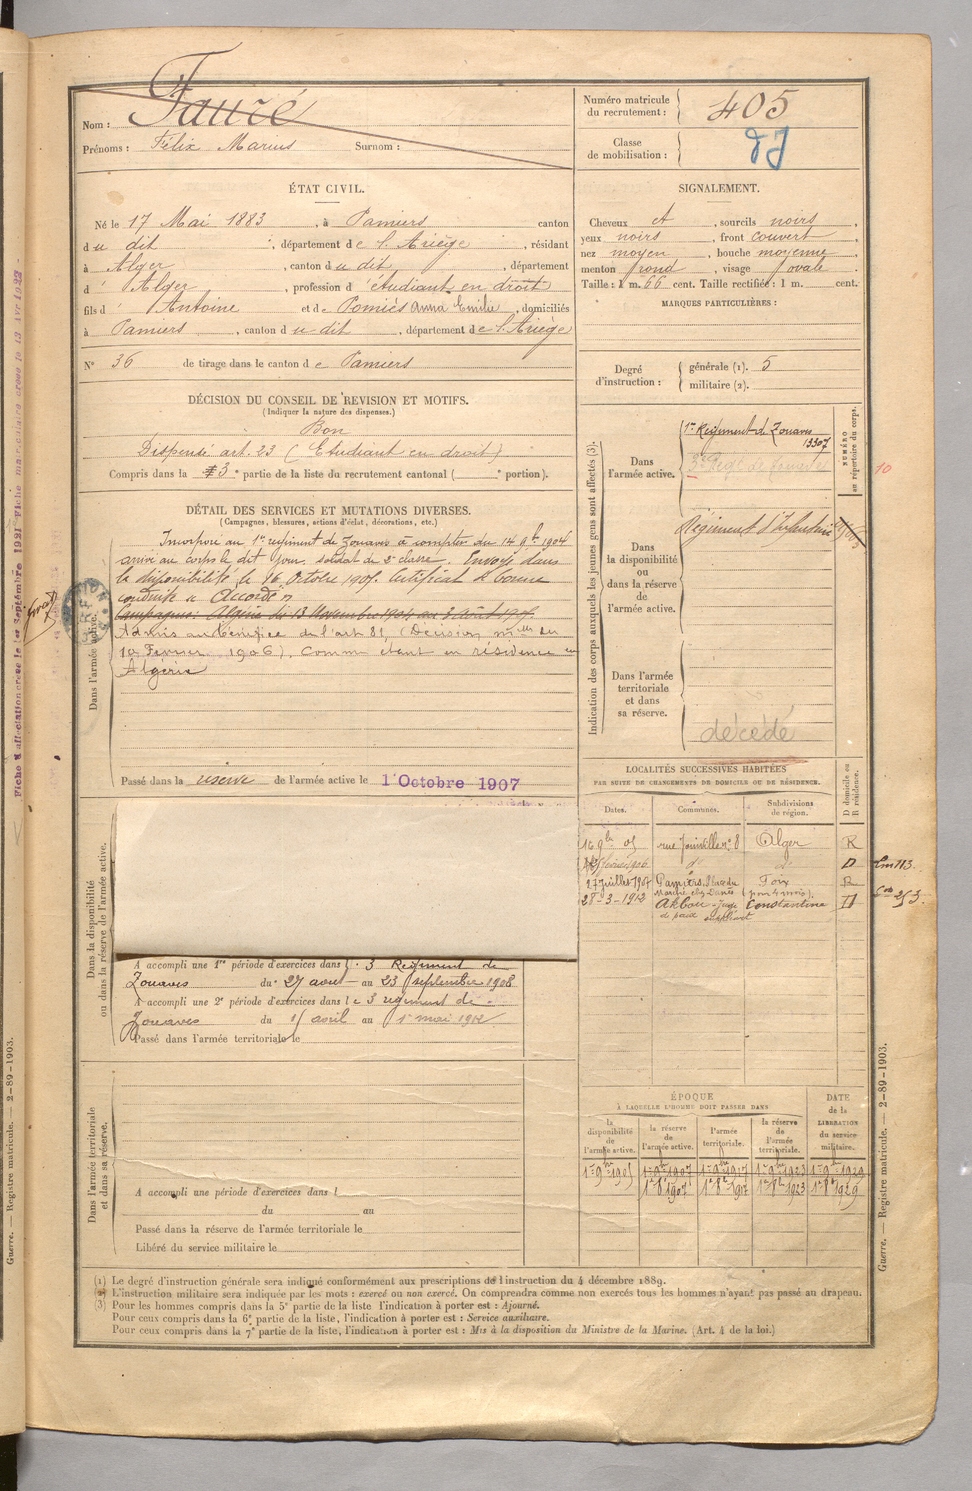 Nom : Fauré
Prénoms : Félix Marius Surnom :
Numéro matricule du recrutement : 405
Classe de mobilisation :
ÉTAT CIVIL.
Né le 17 Mai 1883, à Pamiers canton
du dit, département de l'Ariège, résidant
à Alger, canton du dit, département
d'Alger, profession d'étudiant en droit
fils d'Antoine et de Pomiès Anna Emilie, domiciliés
à Pamiers, canton du dit, département de l'Ariège
N° 36 de tirage dans le canton de Pamiers
SIGNALEMENT.
Cheveux et, sourcils noirs,
yeux noirs, front couvert
nez moyen, bouche moyenne
menton rond, visage ovale
Taille : 1 m. 66 cent. Taille rectifiée : 1 m. cent.
MARQUES PARTICULIÈRES :
Degré d'instruction : générale (1). 5
militaire (2).
DÉCISION DU CONSEIL DE REVISION ET MOTIFS.
(Indiquer la nature des dispenses.)
Bon
Dispensé art. 23 (Etudiant en droit)
Compris dans la 3e partie de la liste du recrutement cantonal ( e portion).
DÉTAIL DES SERVICES ET MUTATIONS DIVERSES.
(Campagnes, blessures, actions d'éclat, décorations, etc.)
Dans l'armée active.
Incorporé au 1er régiment de Zouaves à compter du 14 9bre 1904
arrivé au corps le dit jour, soldat de 2e classe. Envoyé dans
la disponibilité le 16 Octobre 1905. Certificat de bonne
conduite « Accordé »
Campagnes: Algérie du 13 Novembre 1904 au
Admis au bénéfice de l'art 81, (Décision mlle du
10 Février 1906). Comme étant en résidence en
Algérie
Passé dans la réserve de l'armée active le 1 Octobre 1907
Indication des corps auxquels les jeunes gens sont affectés (3).
NUMÉRO au répertoire du corps.
Dans l'armée active.
1er Régiment de Zouaves
13307
10
Dans la disponibilité ou dans la réserve de l'armée active.
Régiment d'Infanterie
Dans l'armée territoriale et dans sa réserve.
décédé
LOCALITÉS SUCCESSIVES HABITÉES
PAR SUITE DE CHANGEMENTS DE DOMICILE OU DE RÉSIDENCE.
D domicile ou R résidence.
Dates. Communes. Subdivisions de région.
16 9bre 05 rue Joinville n° 8 Alger R
d° D
27 juillet 1907 Pamiers Foix R
28-3-1912 Akbou - juge de paix suppléant Constantine D
Dans la disponibilité ou dans la réserve de l'armée active.
A accompli une 1re période d'exercices dans le 3 Régiment de
Zouaves du 27 août au 23 septembre 1908
A accompli une 2e période d'exercices dans le 3 régiment de
Zouaves du 15 avril au 1er mai
Passé dans l'armée territoriale le
ÉPOQUE
A LAQUELLE L'HOMME DOIT PASSER DANS
la disponibilité de l'armée active. la réserve de l'armée active. l'armée territoriale. la réserve de l'armée territoriale. DATE de la LIBÉRATION du service militaire.
1er 9bre 1905 1er 9bre 1907 1er 9bre 1917 1er 9bre 1923 1er 9bre 1929
1er 8bre 1907 1er 8bre 1917 1er 8bre 1923 1er 8bre 1929
Dans l'armée territoriale et dans sa réserve.
A accompli une période d'exercices dans l
du au
Passé dans la réserve de l'armée territoriale le
Libéré du service militaire le
(1) Le degré d'instruction générale sera indiqué conformément aux prescriptions de l'instruction du 4 décembre 1889.
(2) L'instruction militaire sera indiquée par les mots : exercé ou non exercé. On comprendra comme non exercés tous les hommes n'ayant pas passé au drapeau.
(3) Pour les hommes compris dans la 5e partie de la liste l'indication à porter est : Ajourné.
Pour ceux compris dans la 6e partie de la liste, l'indication à porter est : Service auxiliaire.
Pour ceux compris dans la 7e partie de la liste, l'indication à porter est : Mis à la disposition du Ministre de la Marine. (Art. 4 de la loi.)
Guerre. — Registre matricule. — 2-89-1903.
Guerre. — Registre matricule. — 2-89-1903.